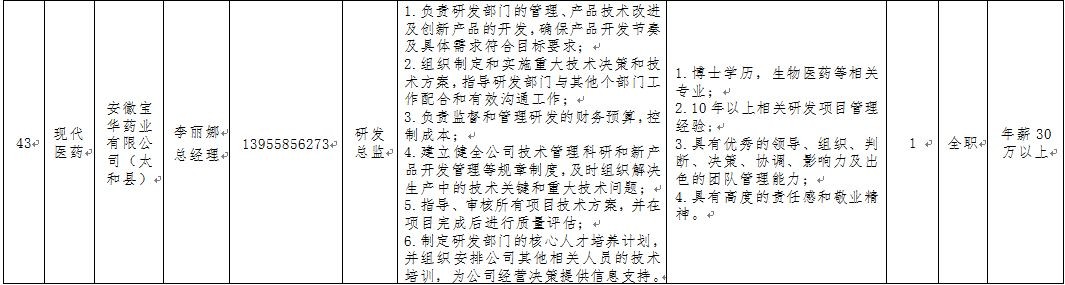 43
现代
医药
安徽宝
华药业
有限公
司（太
和县）
李丽娜
总经理
13955856273
研发
总监
1. 负责研发部门的管理、产品技术改进
及创新产品的开发，确保产品开发节奏
及具体需求符合目标要求；
2. 组织制定和实施重大技术决策和技
术方案，指导研发部门与其他个部门工
作配合和有效沟通工作；
3. 负责监督和管理研发的财务预算，控
制成本；
4. 建立健全公司技术管理科研和新产
品开发管理等规章制度，及时组织解决
生产中的技术关键和重大技术问题；
5. 指导、审核所有项目技术方案，并在
项目完成后进行质量评估；
6. 制定研发部门的核心人才培养计划，
并组织安排公司其他相关人员的技术
培训，为公司经营决策提供信息支持。
1. 博士学历，生物医药等相关
专业；
2. 10 年以上相关研发项目管理
经验；
3. 具有优秀的领导、组织、判
断、决策、协调、影响力及出
色的团队管理能力；
4. 具有高度的责任感和敬业精
神。
1
全职
年薪 30
万以上